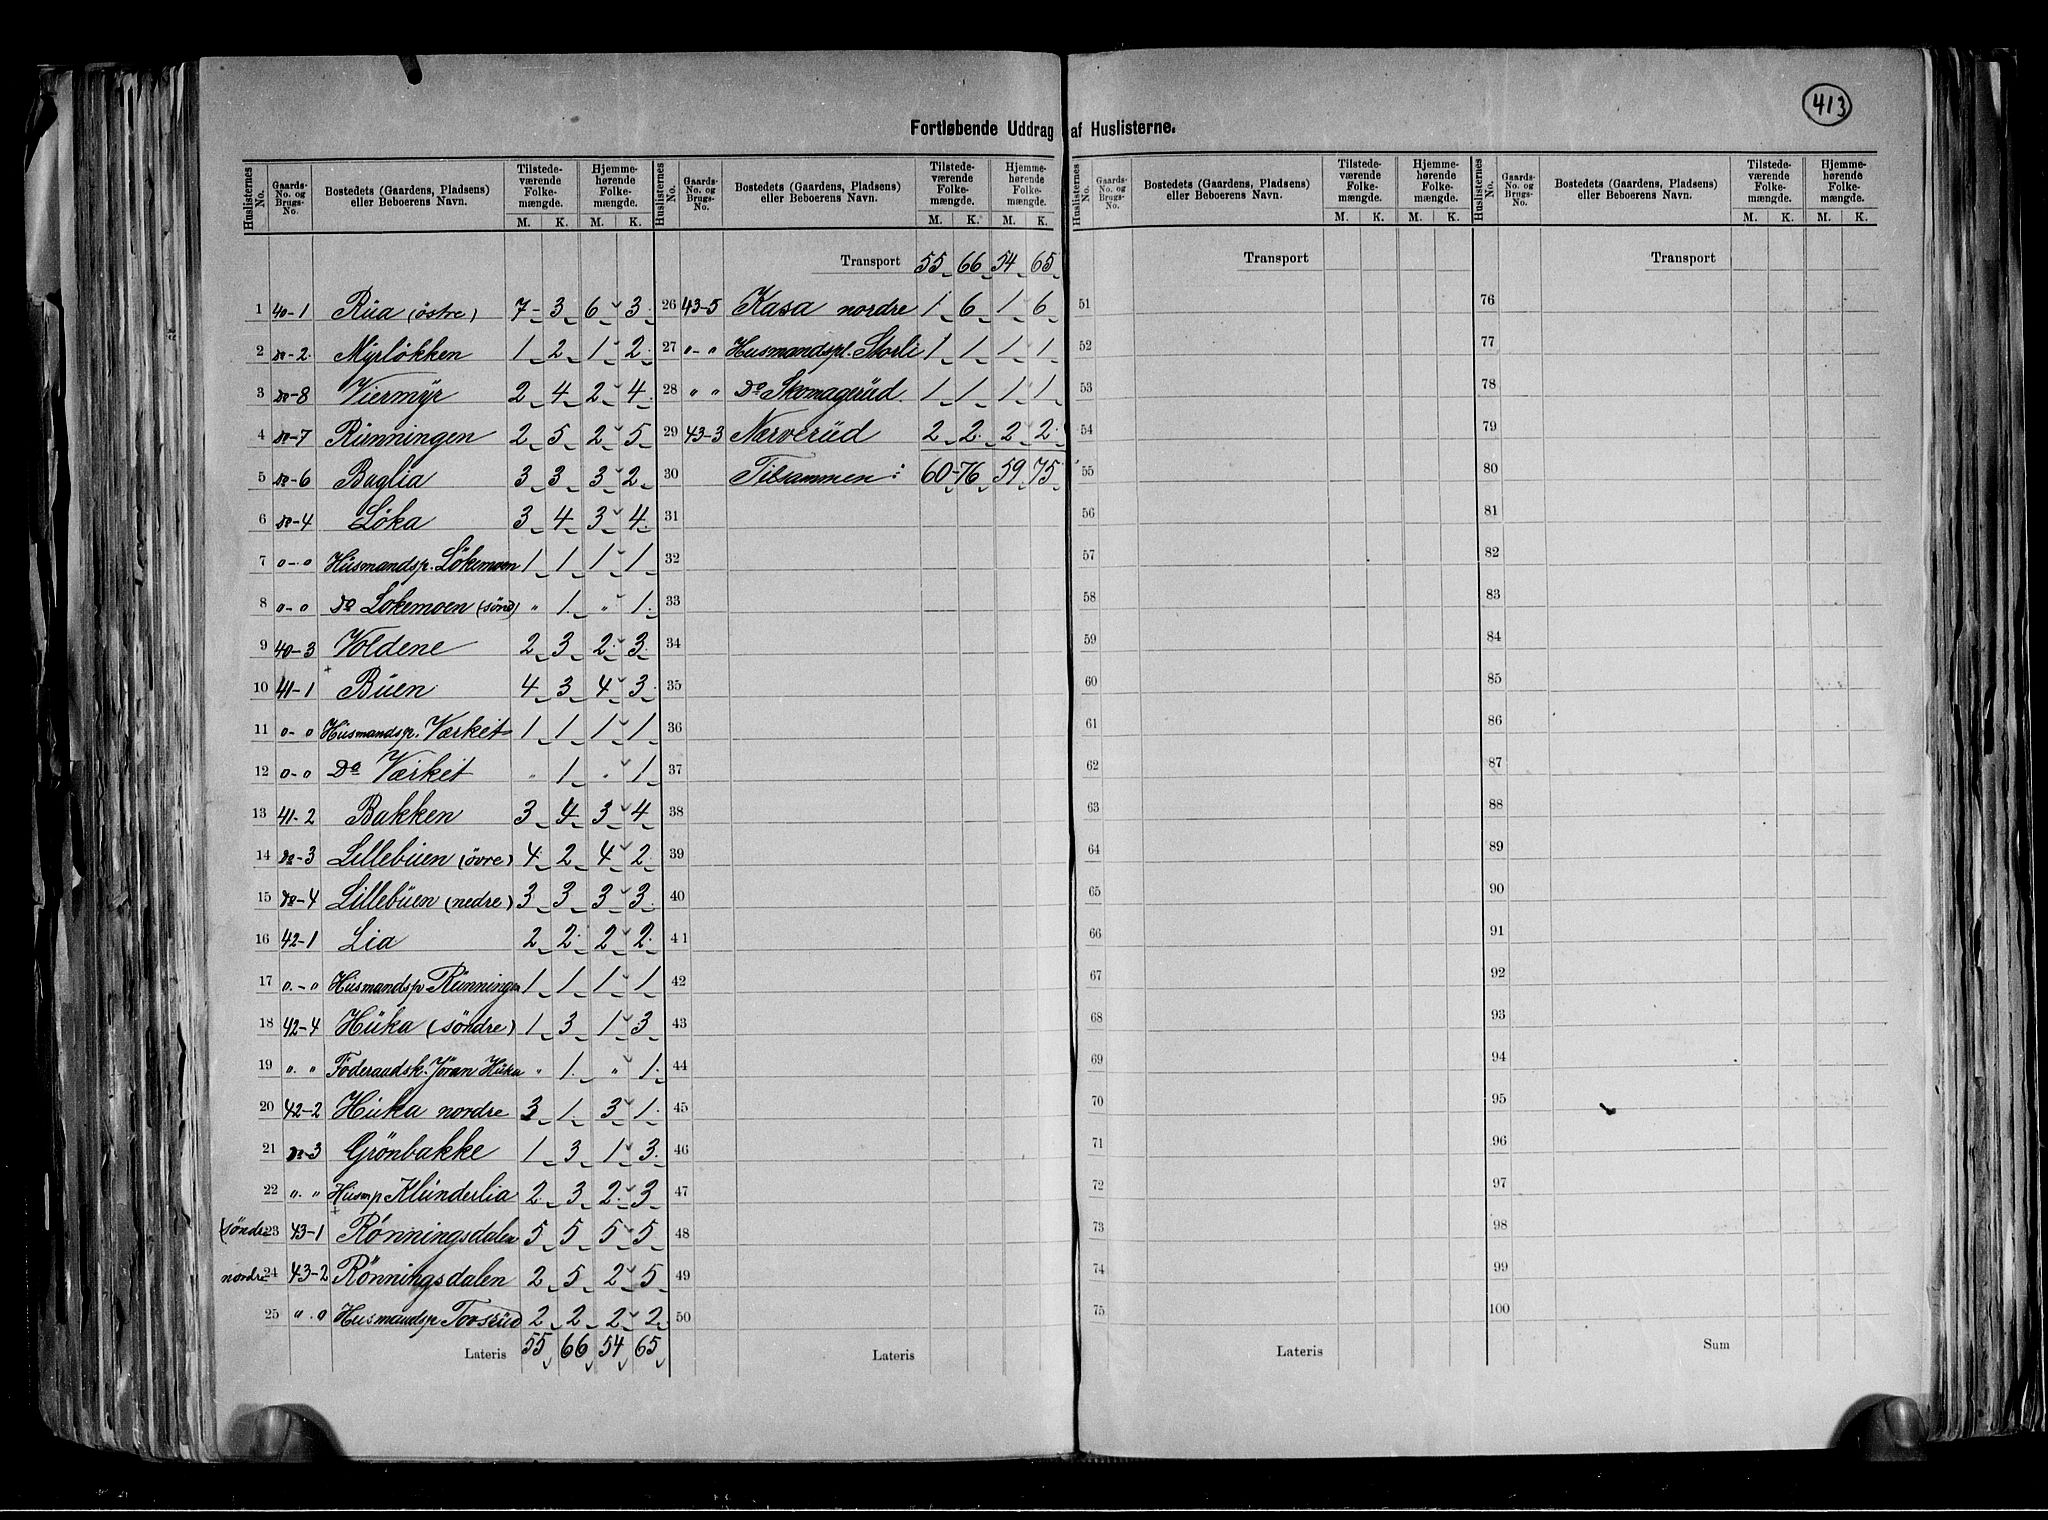 413
Fortløbende Uddrag af Huslisterne.
Huslisternes No. Gaards-No. og Brugs-No. Bostedets (Gaardens, Pladsens) eller Beboerens Navn. Tilstedeværende Folkemængde. M. K. Hjemmehørende Folkemængde. M. K.
1 40-1 Rüa (östre) 7 3 6 3
2 Do-2 Myrløkken 1 2 1 2
3 Do-8 Viermyr 2 4 2 4
4 Do-7 Rünningen 2 5 2 5
5 Do-6 Baglia 3 3 3 2
6 Do-4 Löka 3 4 3 4
7 "-" Hüsmandsp. Lökemoen 1 1 1 1
8 "-" Do Lokemoen (sönd) " 1 " 1
9 40-3 Voldene 2 3 2 3
10 41-1 Büen 4 3 4 3
11 "-" Hüsmandsp. Værket 1 1 1 1
12 "-" Do Værket " 1 " 1
13 41-2 Bakken 3 4 3 4
14 Do-3 Lillebüen (övre) 4 2 4 2
15 Do-4 Lillebüen (nedre) 3 3 3 3
16 42-1 Lia 2 2 2 2
17 "-" Hüsmandsp Rünningen 1 1 1 1
18 42-4 Hüka (söndre) 1 3 1 3
19 " " Föderaadsk. Jöran Hüka " 1 " 1
20 42-2 Hüka nordre 3 1 3 1
21 Do-3 Grönbakke 1 3 1 3
22 " " Hüsmp Klünderlia 2 3 2 3
(söndre 23 43-1 Rønningsdalen 5 5 5 5
nordre 24 43-2 Rønningsdalen 2 5 2 5
25 " " Hüsmandsp Torsrüd 2 2 2 2
Lateris 55 66 54 65
Huslisternes No. Gaards-No. og Brugs-No. Bostedets (Gaardens, Pladsens) eller Beboerens Navn. Tilstedeværende Folkemængde. M. K. Hjemmehørende Folkemængde. M. K.
Transport 55 66 54 65
26 43-5 Kasa nordre 1 6 1 6
27 "-" Hüsmandspl. Storli 1 1 1 1
28 " " Do Skomagerüd 1 1 1 1
29 43-3 Nærverüd 2 2 2 2
30 Tilsammen: 60 76 59 75
31
32
33
34
35
36
37
38
39
40
41
42
43
44
45
46
47
48
49
50
Lateris
Huslisternes No. Gaards-No. og Brugs-No. Bostedets (Gaardens, Pladsens) eller Beboerens Navn. Tilstedeværende Folkemængde. M. K. Hjemmehørende Folkemængde. M. K.
Transport
51
52
53
54
55
56
57
58
59
60
61
62
63
64
65
66
67
68
69
70
71
72
73
74
75
Lateris
Huslisternes No. Gaards-No. og Brugs-No. Bostedets (Gaardens, Pladsens) eller Beboerens Navn. Tilstedeværende Folkemængde. M. K. Hjemmehørende Folkemængde. M. K.
Transport
76
77
78
79
80
81
82
83
84
85
86
87
88
89
90
91
92
93
94
95
96
97
98
99
100
Sum